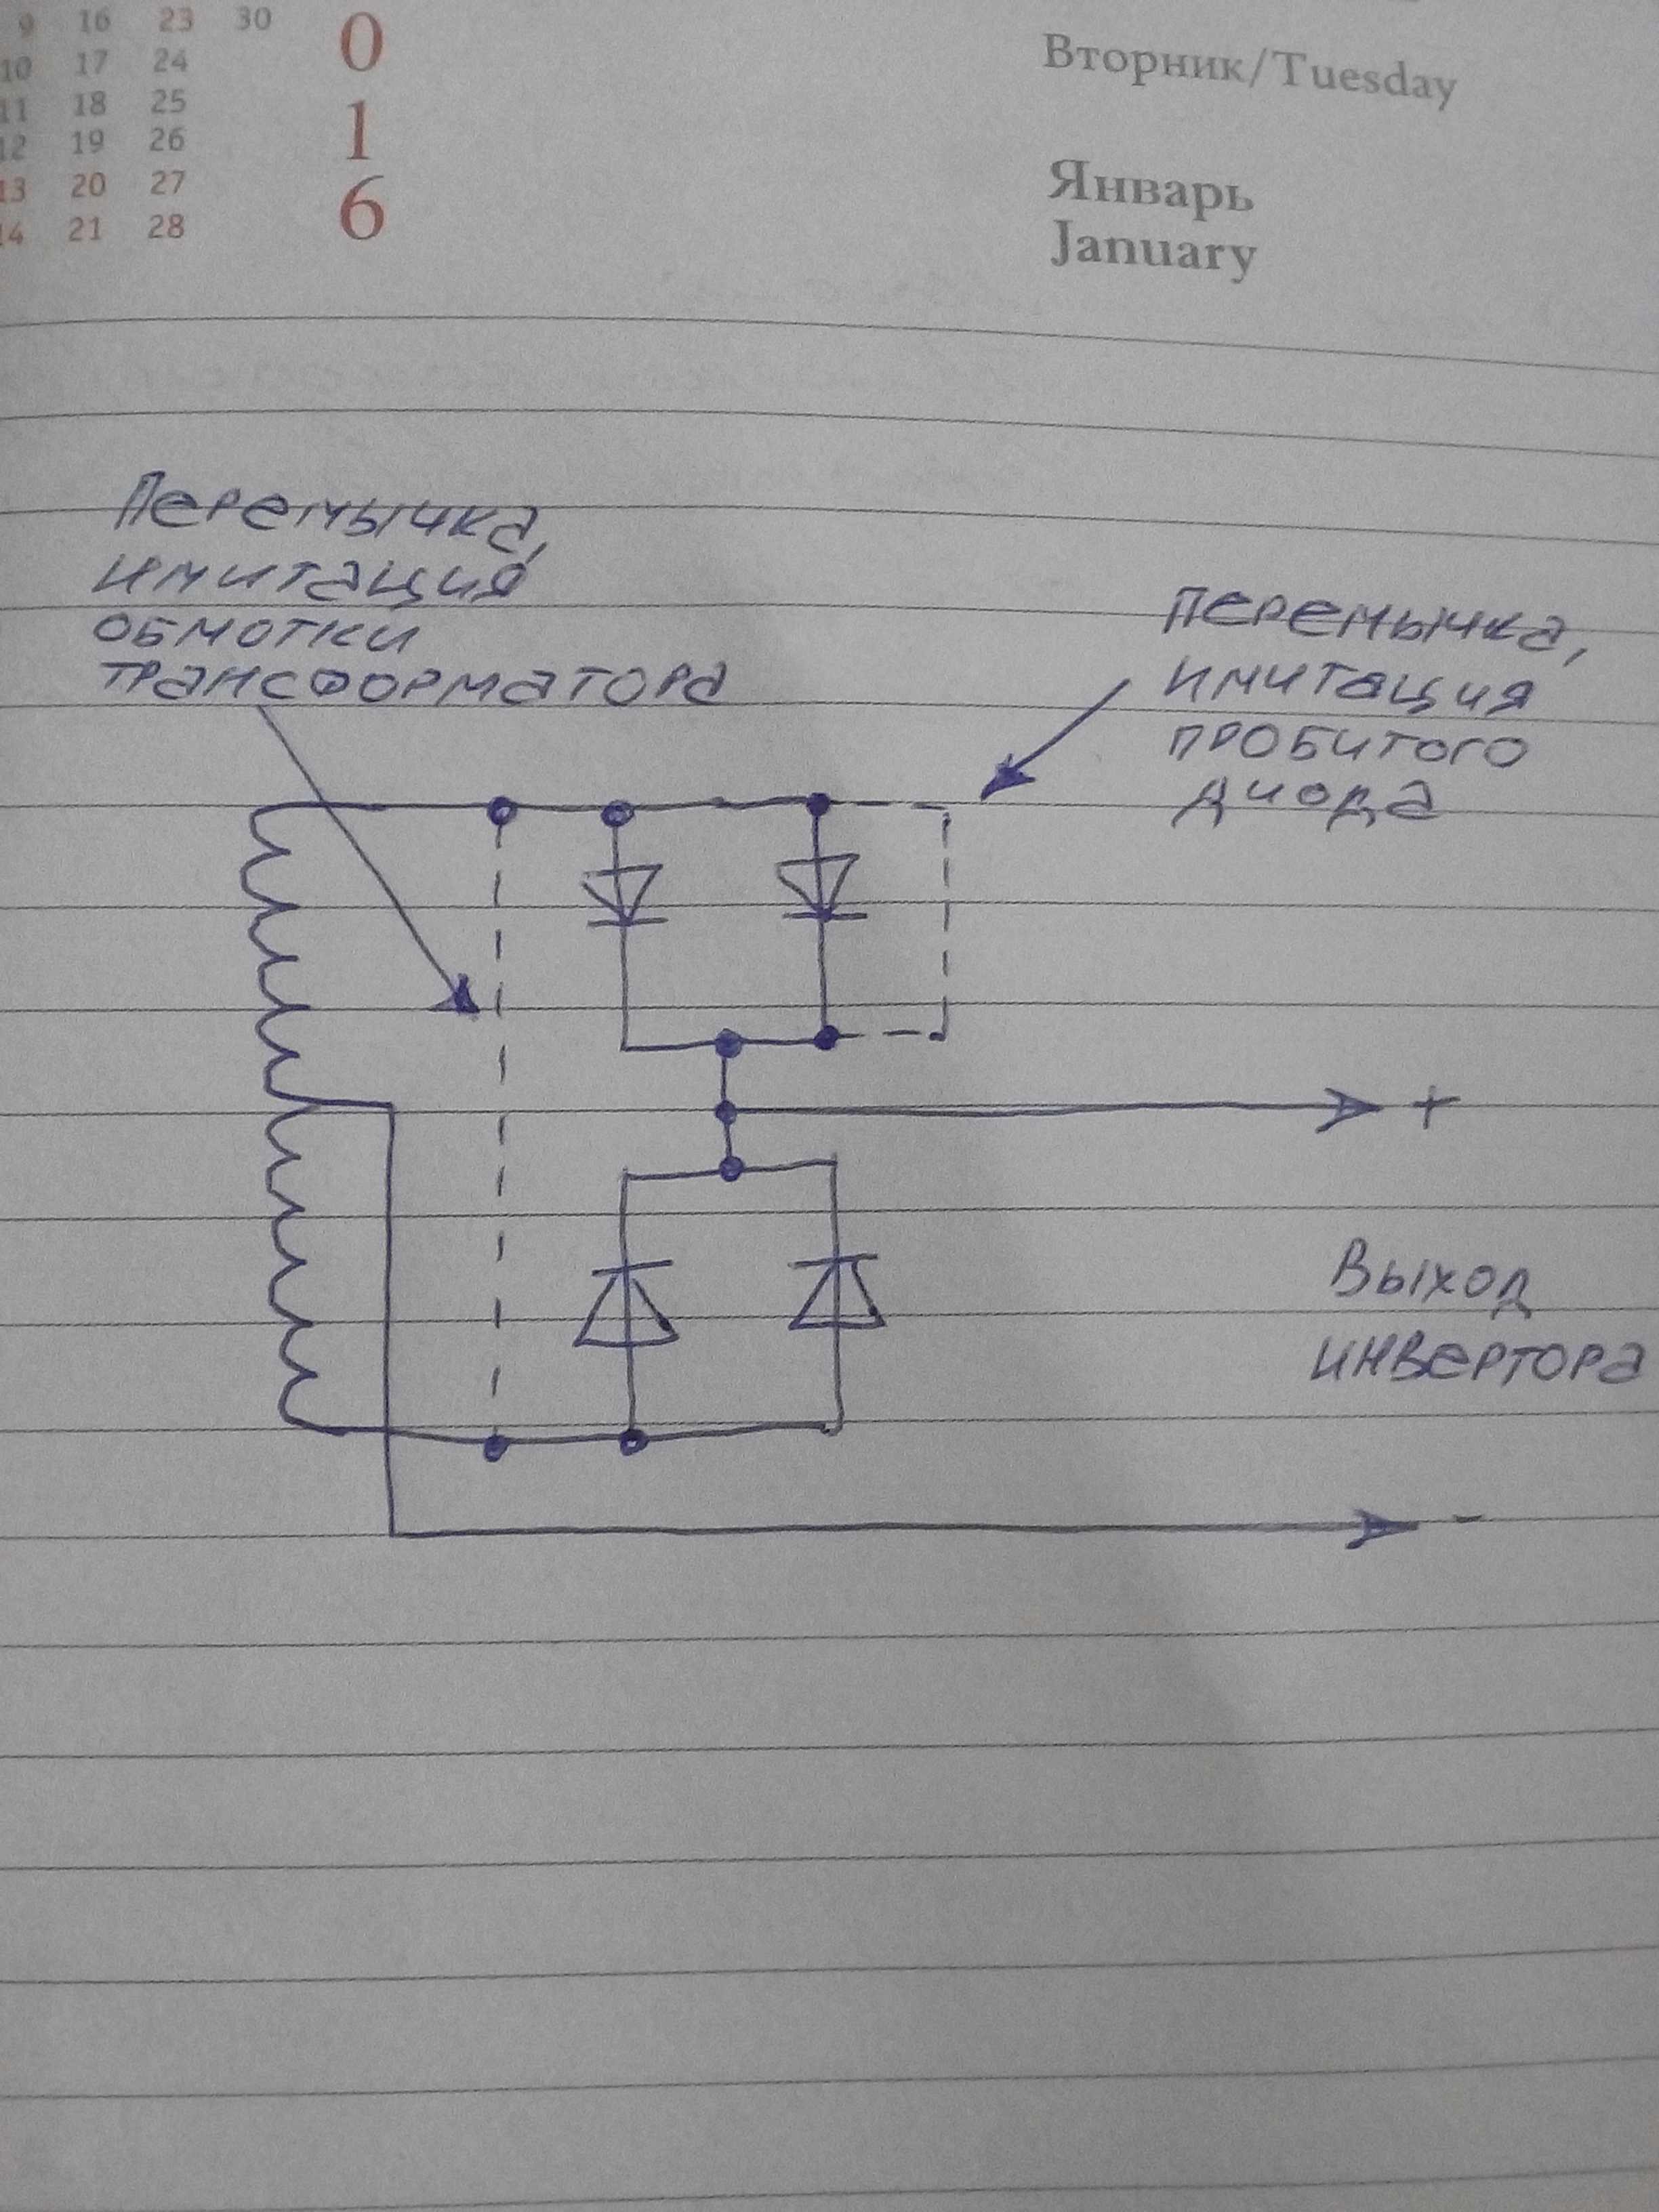 9 16 23 30
10 17 24
11 18 25
12 19 26
13 20 27
14 21 28
0
1
6
Вторник/Tuesday
Январь
January
Перемычка,
имитация
обмотки
трансформатора
Перемычка,
имитация
пробитого
диода
+
Выход
инвертора
-